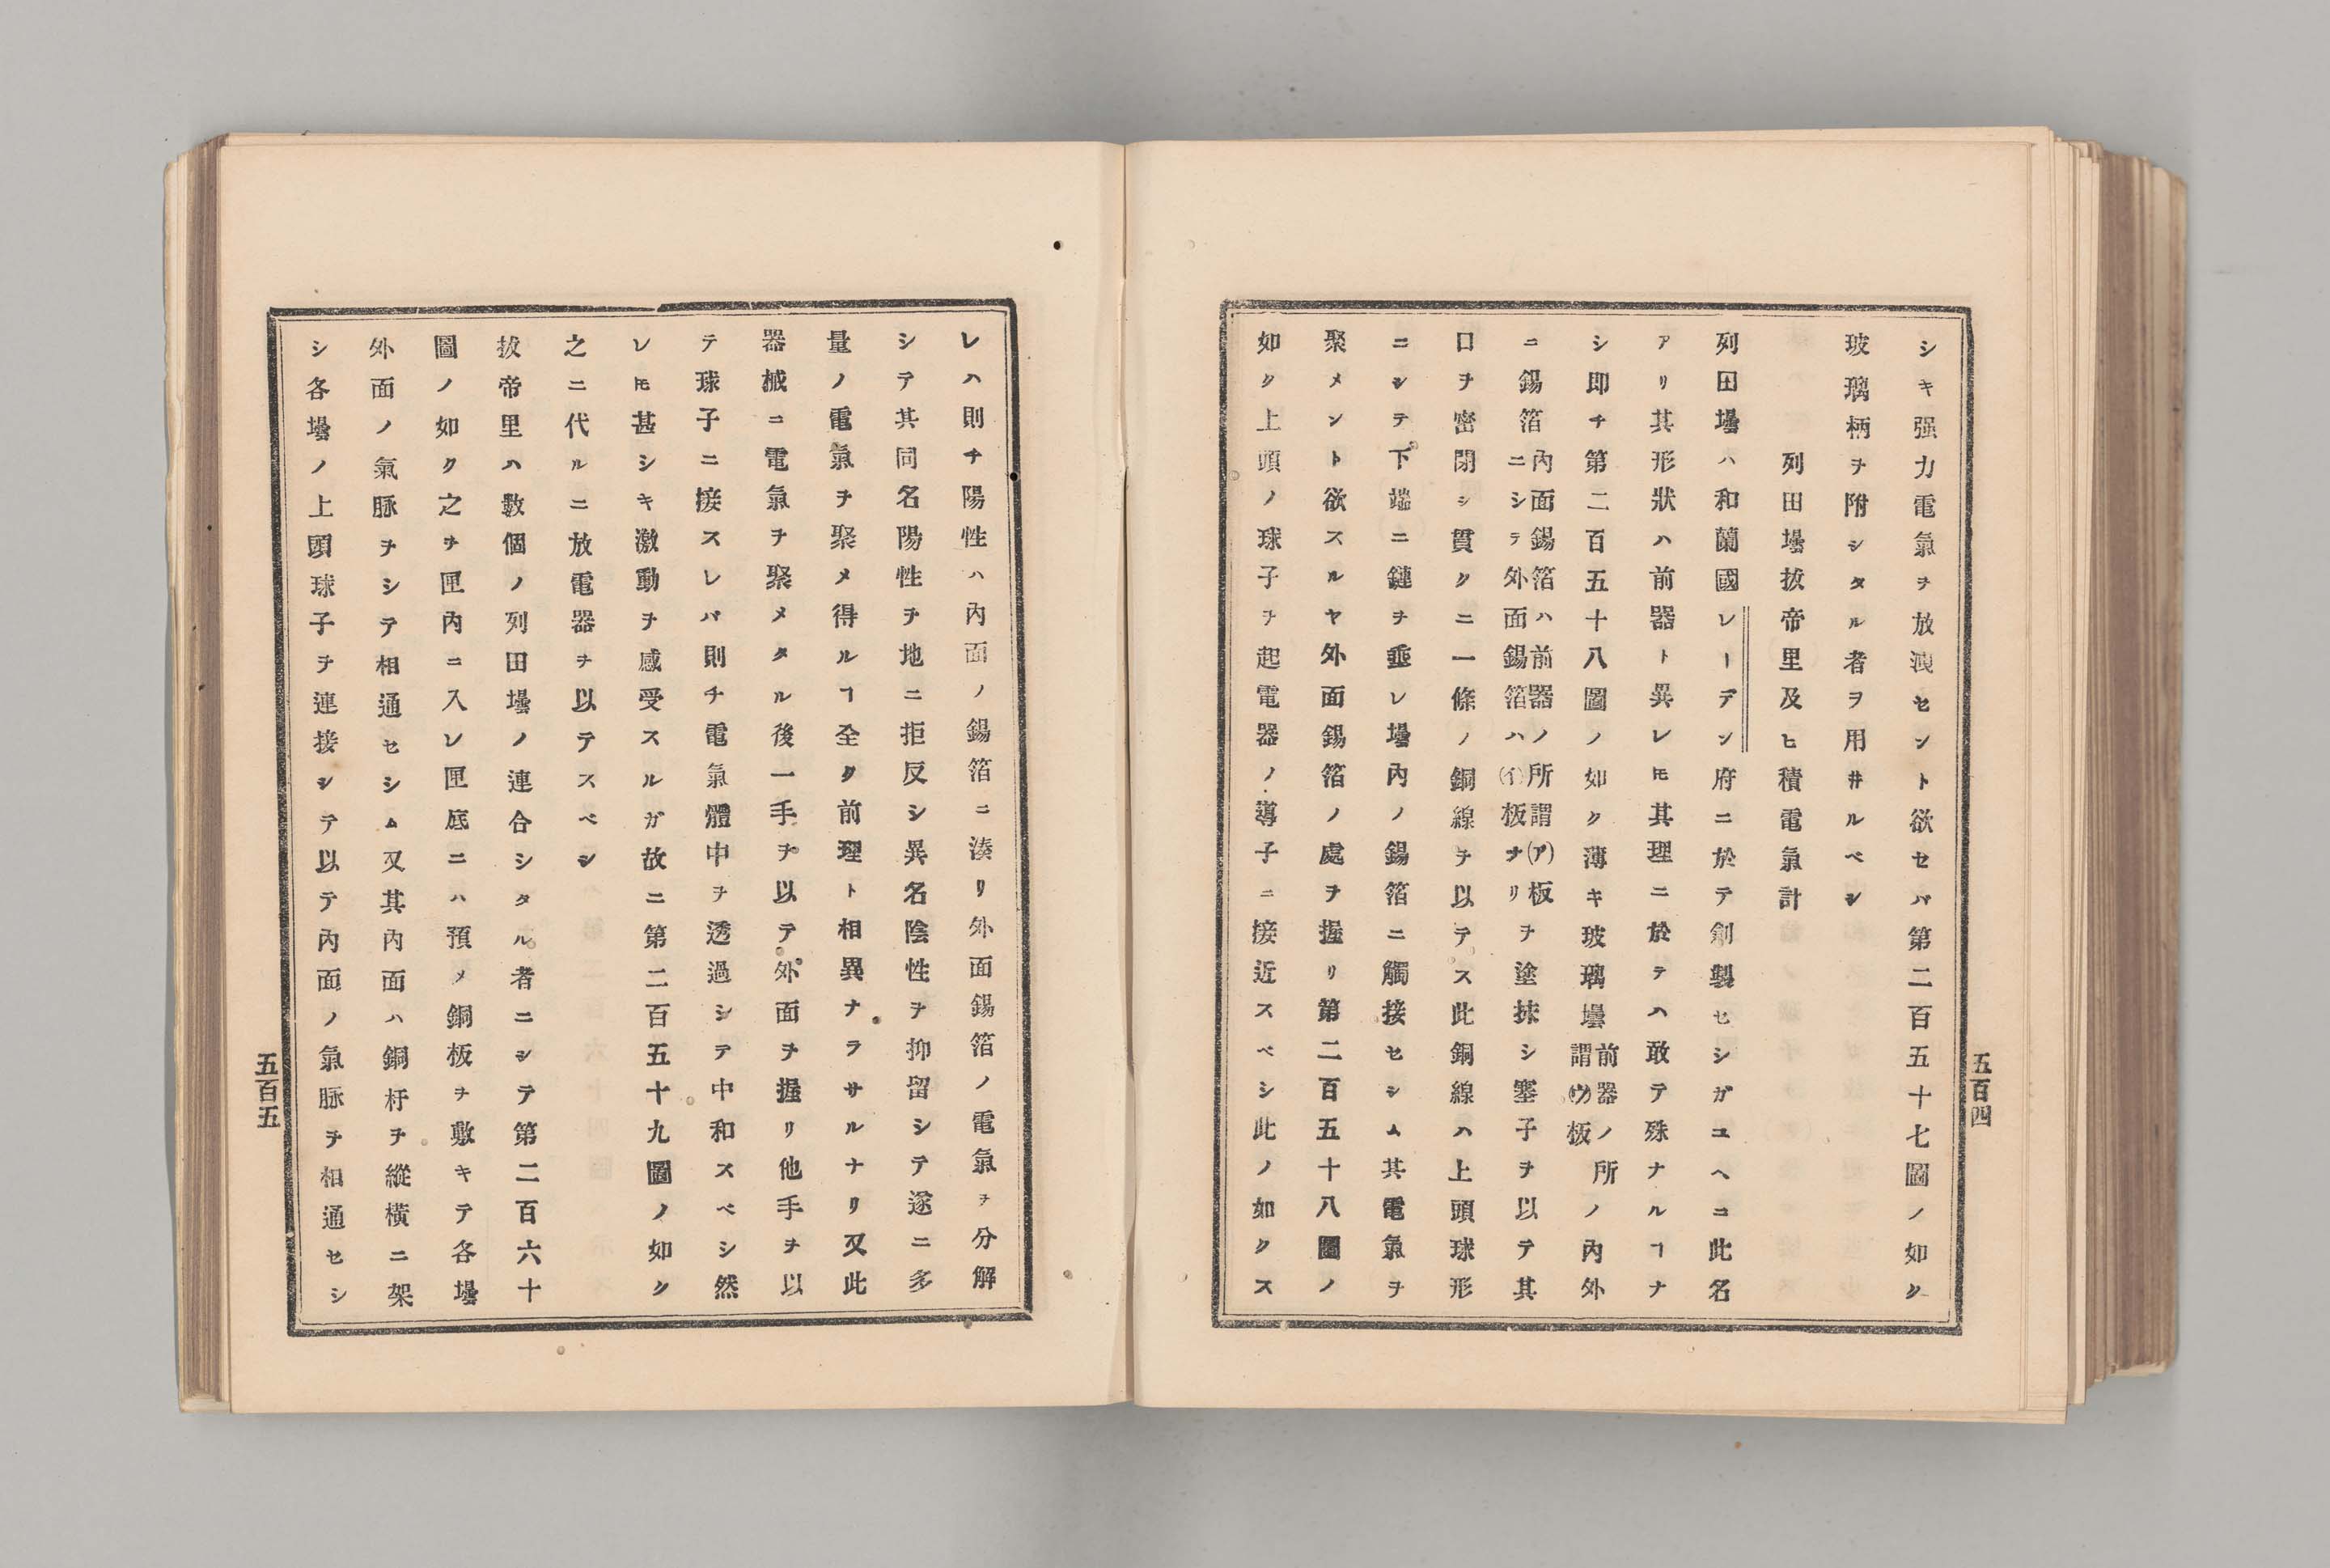 シキ强力電氣ヲ放洩セント欲セバ第二百五十七圖ノ如ク
玻璃柄ヲ附シタル者ヲ用井ルベシ
列田壜拔帝里及ヒ積電氣計
列田壜ハ和蘭國レーデン府ニ於テ創製セシガユヘニ此名
アリ其形狀ハ前器ト異レ𪜈其理ニ於テハ敢テ殊ナルヿナ
シ即チ第二百五十八圖ノ如ク薄キ玻璃壜前器ノ所謂(ウ)板ノ內外
ニ錫箔內面錫箔ハ前器ノ所謂(ア)板ニシテ外面錫箔ハ(イ)板ナリヲ塗抹シ塞子ヲ以テ其
口ヲ密閉シ貫クニ一條ノ銅線ヲ以テス此銅線ハ上頭球形
ニシテ下端ニ鏈ヲ垂レ壜內ノ錫箔ニ觸接セシム其電氣ヲ
聚メント欲スルヤ外面錫箔ノ處ヲ握リ第二百五十八圖ノ
如ク上頭ノ球子ヲ起電器ノ導子ニ接近スベシ此ノ如クス
五百四
レハ則チ陽性ハ內面ノ錫箔ニ湊リ外面錫箔ノ電氣ヲ分解
シテ其同名陽性ヲ地ニ拒反シ異名陰性ヲ抑留シテ遂ニ多
量ノ電氣ヲ聚メ得ルヿ全ク前理ト相異ナラサルナリ又此
器械ニ電氣ヲ聚メタル後一手ヲ以テ外面ヲ握リ他手ヲ以
テ球子ニ接スレバ則チ電氣體中ヲ透過シテ中和スベシ然
レ𪜈甚シキ激動ヲ感受スルガ故ニ第二百五十九圖ノ如ク
之ニ代ルニ放電器ヲ以テスベシ
拔帝里ハ數個ノ列田壜ノ連合シタル者ニシテ第二百六十
圖ノ如ク之ヲ匣內ニ入レ匣底ニハ預メ銅板ヲ敷キテ各壜
外面ノ氣脈ヲシテ相通セシム又其內面ハ銅杆ヲ縱橫ニ架
シ各壜ノ上頭球子ヲ連接シテ以テ內面ノ氣脈ヲ相通セシ
五百五